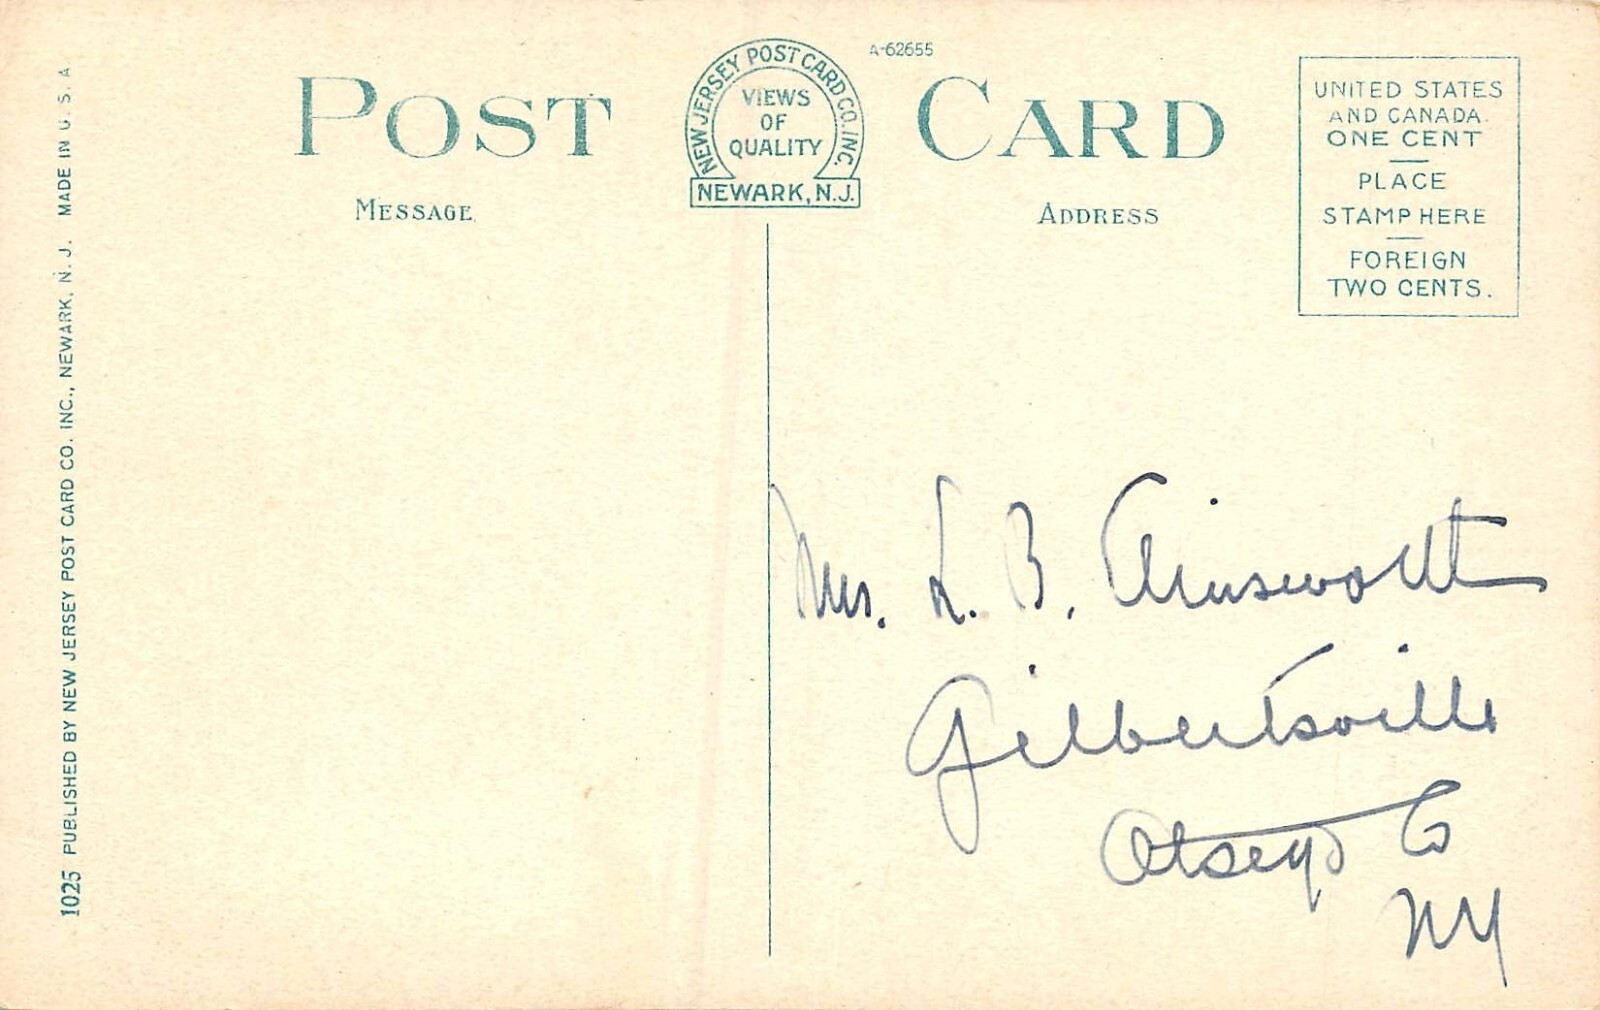 POST CARD
A-62655
NEW JERSEY POST CARD CO. INC.
VIEWS
OF
QUALITY
NEWARK, N.J.
MESSAGE
ADDRESS
UNITED STATES
AND CANADA.
ONE CENT
PLACE
STAMP HERE
FOREIGN
TWO CENTS.
1025 PUBLISHED BY NEW JERSEY POST CARD CO. INC., NEWARK, N. J. MADE IN U. S. A
Mrs. L. B. Ainsworth
Gilbertsville
Otsego Co
NY